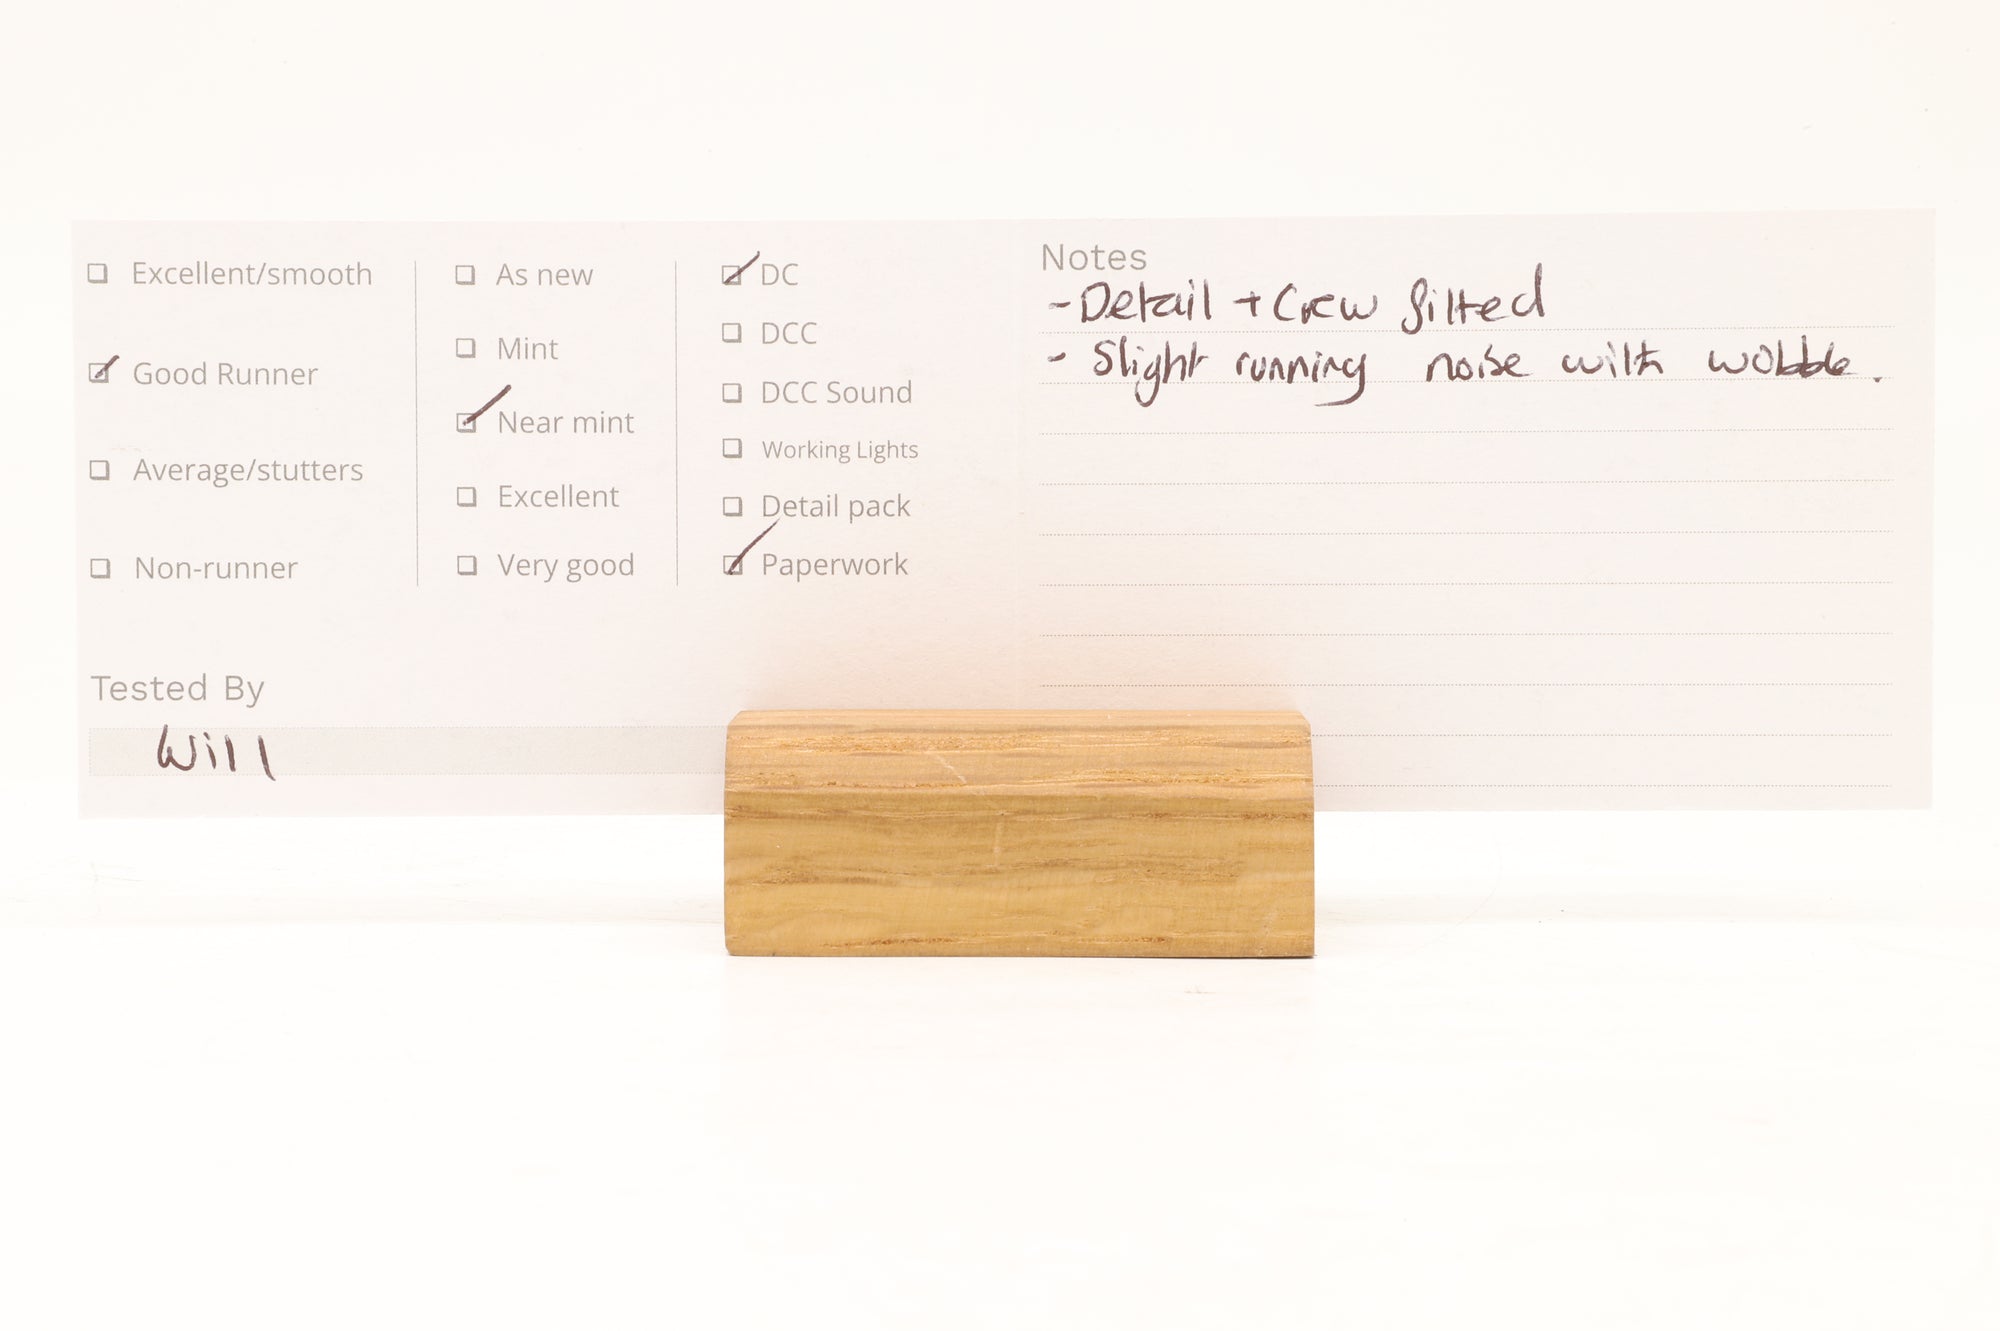 Excellent/smooth
Good Runner
Average/stutters
Non-runner
As new
Mint
Near mint
Excellent
Very good
DC
DCC
DCC Sound
Working Lights
Detail pack
Paperwork
Tested By
Will
Notes
- Detail + Crew fitted
- Slight running noise with wobble.